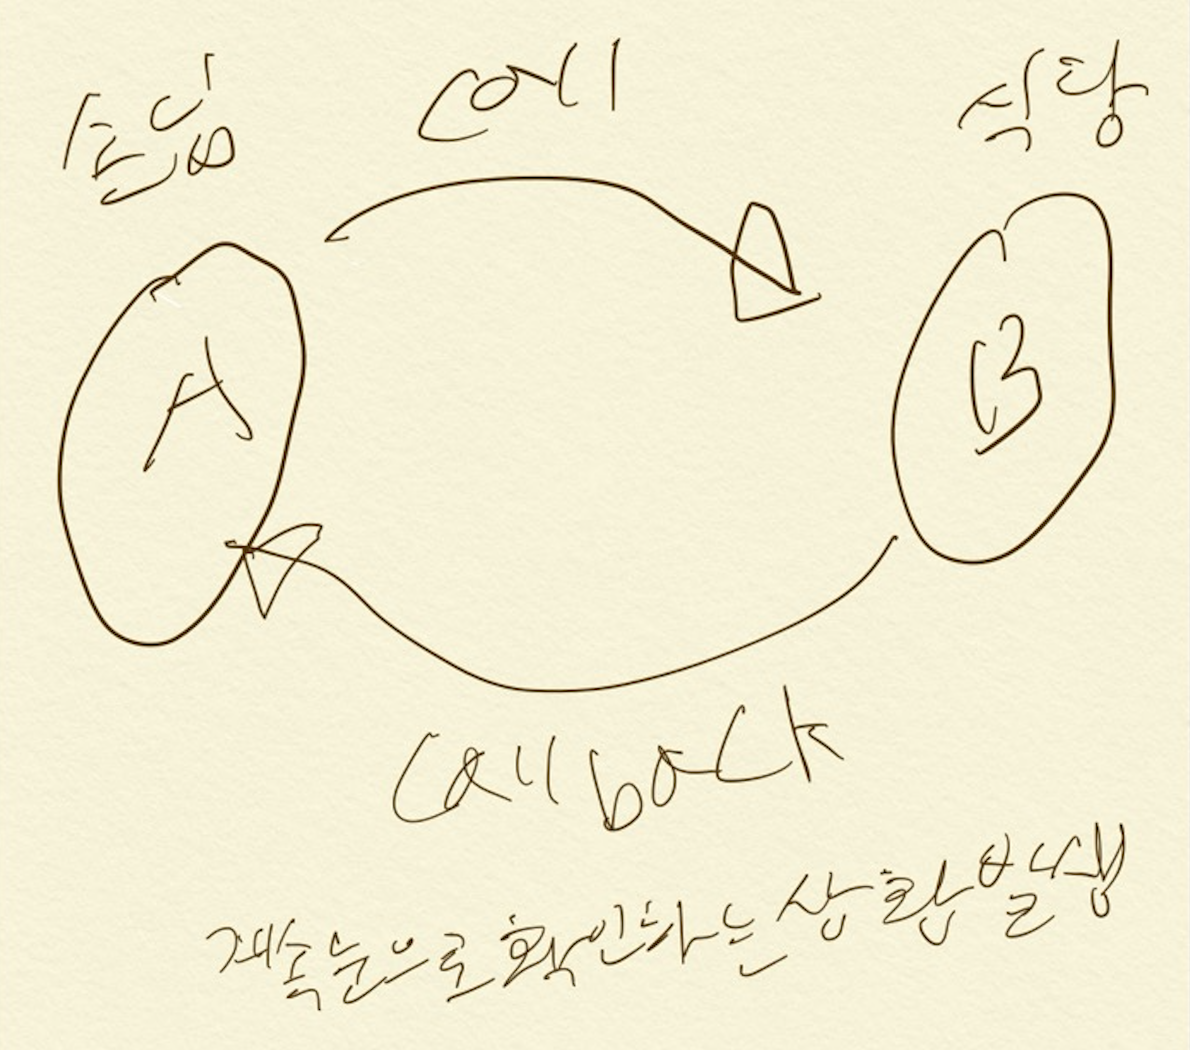 손님
call
식당
A
B
callback
계속 눈으로 확인하는 상황 발생